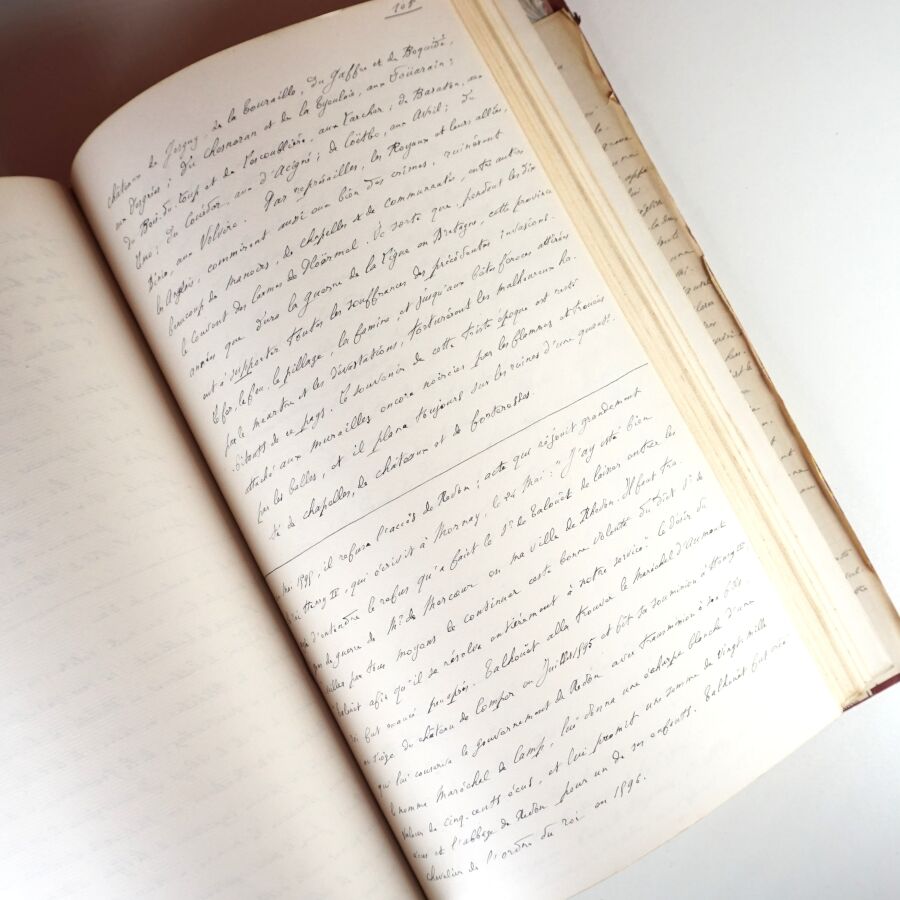 108
château de Josguy, de la Touraille, du Gaffre et du Boquidé,
aux Voyriès ; du Chesnoran et de la Ayeulais, aux Foüarain ;
du Bois-du-Loup et de Coscoublière, aux Varcher ; du Baradon, au
du Couëdor, aux d'Acigné ; de Coëtbo, aux Avril ; du
aux Volvire. Par représailles, les Royaux et leurs alliés,
les Anglais, commirent aussi bien des crimes, ruinèrent
beaucoup de manoirs, de chapelles et de communautés, entre autres
le couvent des Carmes de Ploërmel. De sorte que, pendant les dix
années que dura la guerre de la Ligue en Bretagne, cette province
eut à supporter toutes les souffrances des précédentes invasions.
Le fer, le feu, le pillage, la famine, et jusqu'aux bêtes féroces attirées
par le meurtre et les dévastations, torturèrent les malheureux ha-
-bitants de ce pays. Le souvenir de cette triste époque est resté
attaché aux murailles encore noircies par les flammes et trouées
par les balles, et il plana toujours sur les ruines d'une quanti-
té de chapelles, de châteaux et de forteresses.
mai 1595, il refusa l'accès de Redon ; acte qui réjouit grandement
Henry IV, qui écrivit à Mornay, le 24 Mai : "J'ay esté bien
d'entendre le refus qu'a faict le Sr de Talhouët de laisser entrer les
de guerre de Mr de Mercœur en ma ville de Rhedon. Il faut tra-
-vailler par tous moyens de continuer ceste bonne volonté du dict Sr de
Talouët afin qu'il se résolve entièrement à notre service." Le désir du
roi fut exaucé peu après. Talhouët alla trouver le maréchal d'Aumont
au siège du château de Comper en Juillet 1595 et fit sa soumission à Henry IV,
qui lui conserva le gouvernement de Redon avec transmission à son fils,
le nomma Maréchal de Camp, lui donna une écharpe blanche d'une
valeur de cinq-cents écus, et lui promit une somme de vingt mille
écus et l'abbaye de Redon pour un de ses enfants. Talhouët fut créé
chevalier de l'ordre du roi en 1596.